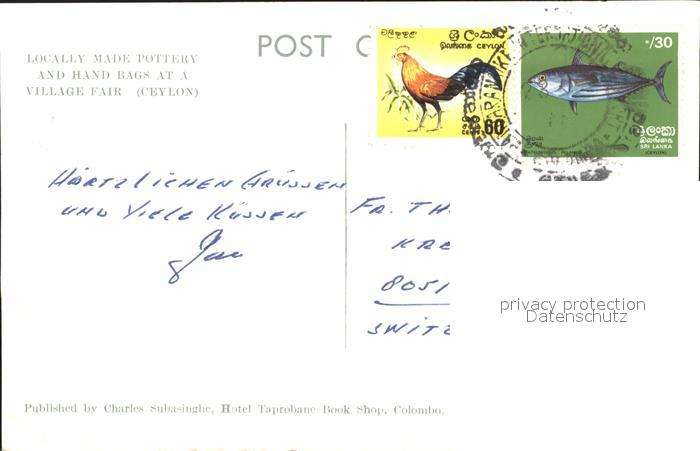 LOCALLY MADE POTTERY
AND HAND BAGS AT A
VILLAGE FAIR (CEYLON)
POST C
ශ්‍රී ලංකා
இலங்கை CEYLON
60
/30
ශ්‍රී ලංකා
இலங்கை
SRI LANKA
(CEYLON)
HÄRTZLICHEN GRÜSSEN
UND VIELE KÜSSEN
FR. TH.
KRE
8051
SWITZ
privacy protection
Datenschutz
Published by Charles Subasinghe, Hotel Taprobane Book Shop, Colombo.